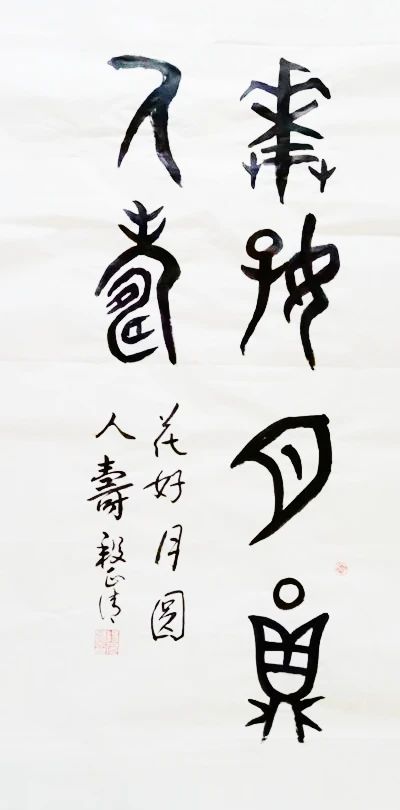 華好月員
人壽
花好月圓
人壽 正清